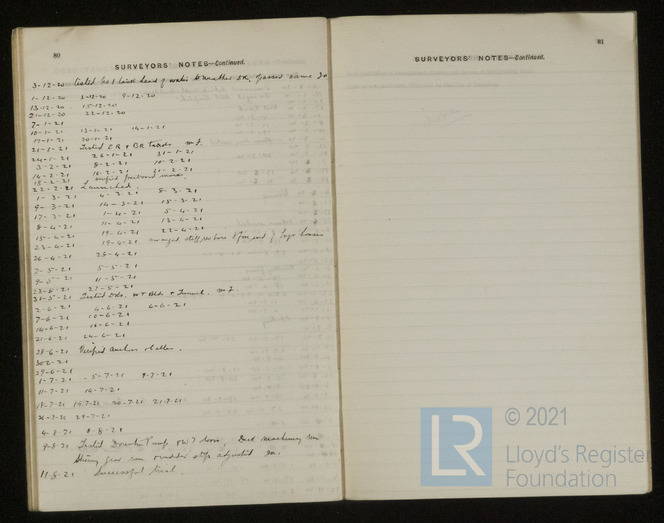 80
SURVEYORS' NOTES—Continued.
3-12-20 tested No 1 tank head of water to weather dk, passed same
1-12-20 2-12-20 9-12-20
13-12-20 15-12-20
21-12-20 22-12-20
7-1-21
10-1-21 13-1-21 14-1-21
17-1-21 20-1-21
21-1-21 Tested ER & BR tanks
24-1-21 26-1-21 31-1-21
3-2-21 8-2-21 10-2-21
14-2-21 16-2-21 21-2-21
15-2-21 verified freeboard
22-2-21 Launched.
1-3-21 4-3-21 8-3-21
9-3-21 14-3-21 15-3-21
17-3-21 1-4-21 5-4-21
8-4-21 11-4-21 13-4-21
15-4-21 19-4-21 22-4-21
23-4-21 19-4-21 arranged stiffeners
26-4-21 28-4-21
2-5-21 5-5-21
9-5-21 11-5-21
23-5-21 27-5-21
31-5-21 Tested Dks. WT Blds & Tunnel.
2-6-21 4-6-21 6-6-21
7-6-21 10-6-21
14-6-21 16-6-21
21-6-21 24-6-21
28-6-21 Verified anchors
29-6-21
1-7-21 5-7-21 9-7-21
11-7-21 14-7-21
18-7-21 19-7-21 20-7-21 21-7-21
26-7-21 29-7-21
4-8-21 8-8-21
9-8-21 Tested WT doors, Deck machinery
Steering gear stops adjusted
11-8-21 Successful trial.
81
SURVEYORS' NOTES—Continued.
LR
© 2021
Lloyd's Register
Foundation